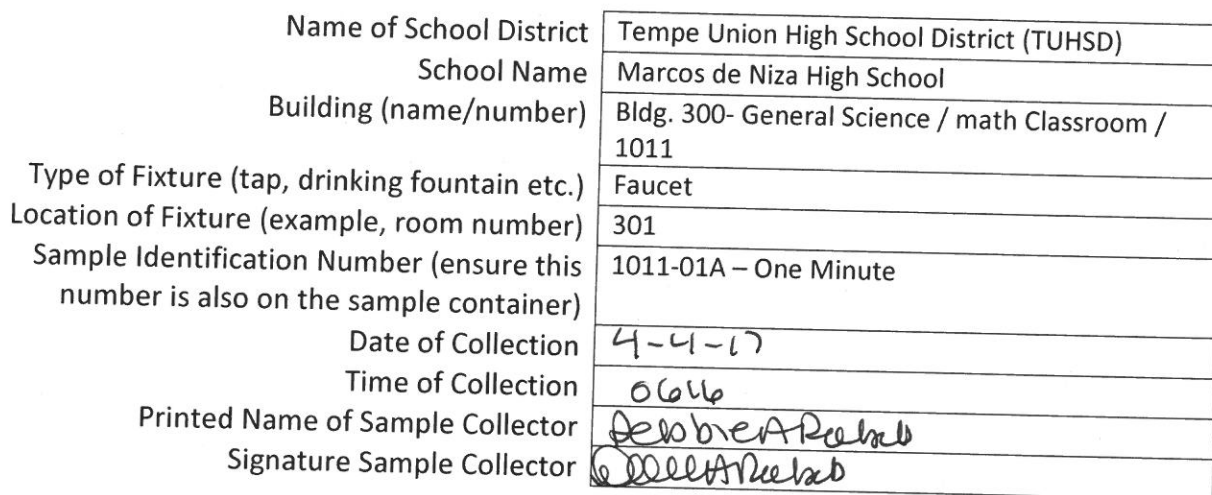 Name of School District Tempe Union High School District (TUHSD)
School Name Marcos de Niza High School
Building (name/number) Bldg. 300- General Science / math Classroom /
1011
Type of Fixture (tap, drinking fountain etc.) Faucet
Location of Fixture (example, room number) 301
Sample Identification Number (ensure this 1011-01A – One Minute
number is also on the sample container)
Date of Collection 4-4-17
Time of Collection 0616
Printed Name of Sample Collector Debbie A
Signature Sample Collector